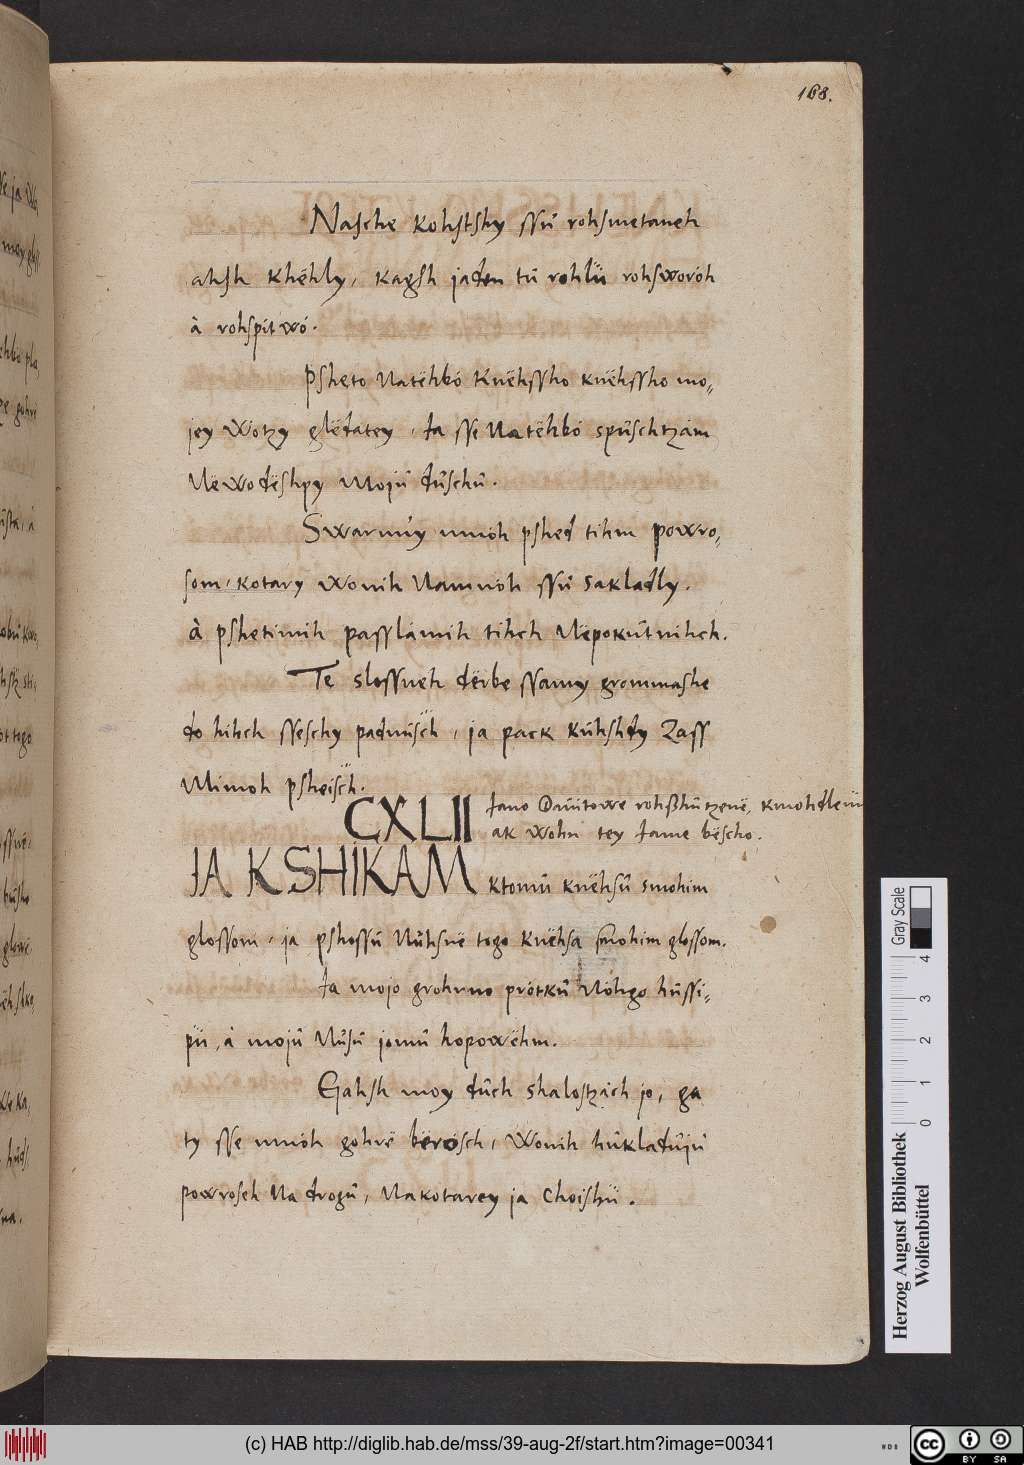 168.
Nasche kohstshy ssů rohsmetaneh
ahsh khëhly, kagsh jaden tů rohlü rohsworóh
à rohspitwó.
Psheto Natëhbó Knëhssho knëhssho mo-
jey wotzy glëdatey, Ja sse Natëhbó spůschtzam
Nëwodëshpy Mojů důschů.
Swarnuy mnóh pshed tihm powro-
som, kotary wonih Namnóh ssů sakladly.
à pshetimih passlámih tihch Nëpokůtnihch.
Te slossneh dërbe ssamy grommashe
do hihch sseschy padnůsch, ja pack kůhshdy Zass
Mimoh psheisch.
CXLII
Jano Dawitowe rohßhůtzenë, kmohdlenü
ak wohn tey Jame bëscho.
JA KSHIKAM ktomů knëhsů smohim
glossom, ja pshossů Nůhsnë togo knëhsa smohim glossom.
Ja mojo grohnno prótků Nóhgo hůssi-
pü, à mojů Nůsů jomů hopowëhm.
Gahsh moy důch shalostzách jo, ga
ty sse mnóh gohrë bërósch, Wonih hůkladůjů
powroseh Na drogů, Nakotarey ja choishü.
Herzog August Bibliothek
Wolfenbüttel
0 1 2 3 4
Gray Scale
(c) HAB http://diglib.hab.de/mss/39-aug-2f/start.htm?image=00341
WDB
cc BY SA